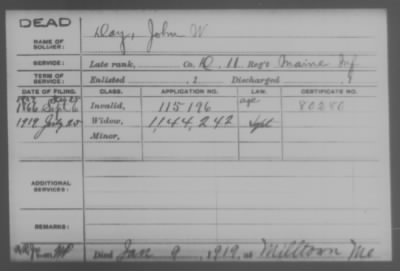 DEAD
NAME OF SOLDIER: Day, John W
SERVICE: Late rank, Co. D, 11 Reg't Maine Inf
TERM OF SERVICE: Enlisted , 1 Discharged , 1
DATE OF FILING. CLASS. APPLICATION NO. LAW. CERTIFICATE NO.
1866 Sept 6 Invalid, 115196 age 80280
1919 July 25 Widow, 1,144,242
Minor,
ADDITIONAL SERVICES:
REMARKS:
Died Jan 9, 1919, at Milltown Me